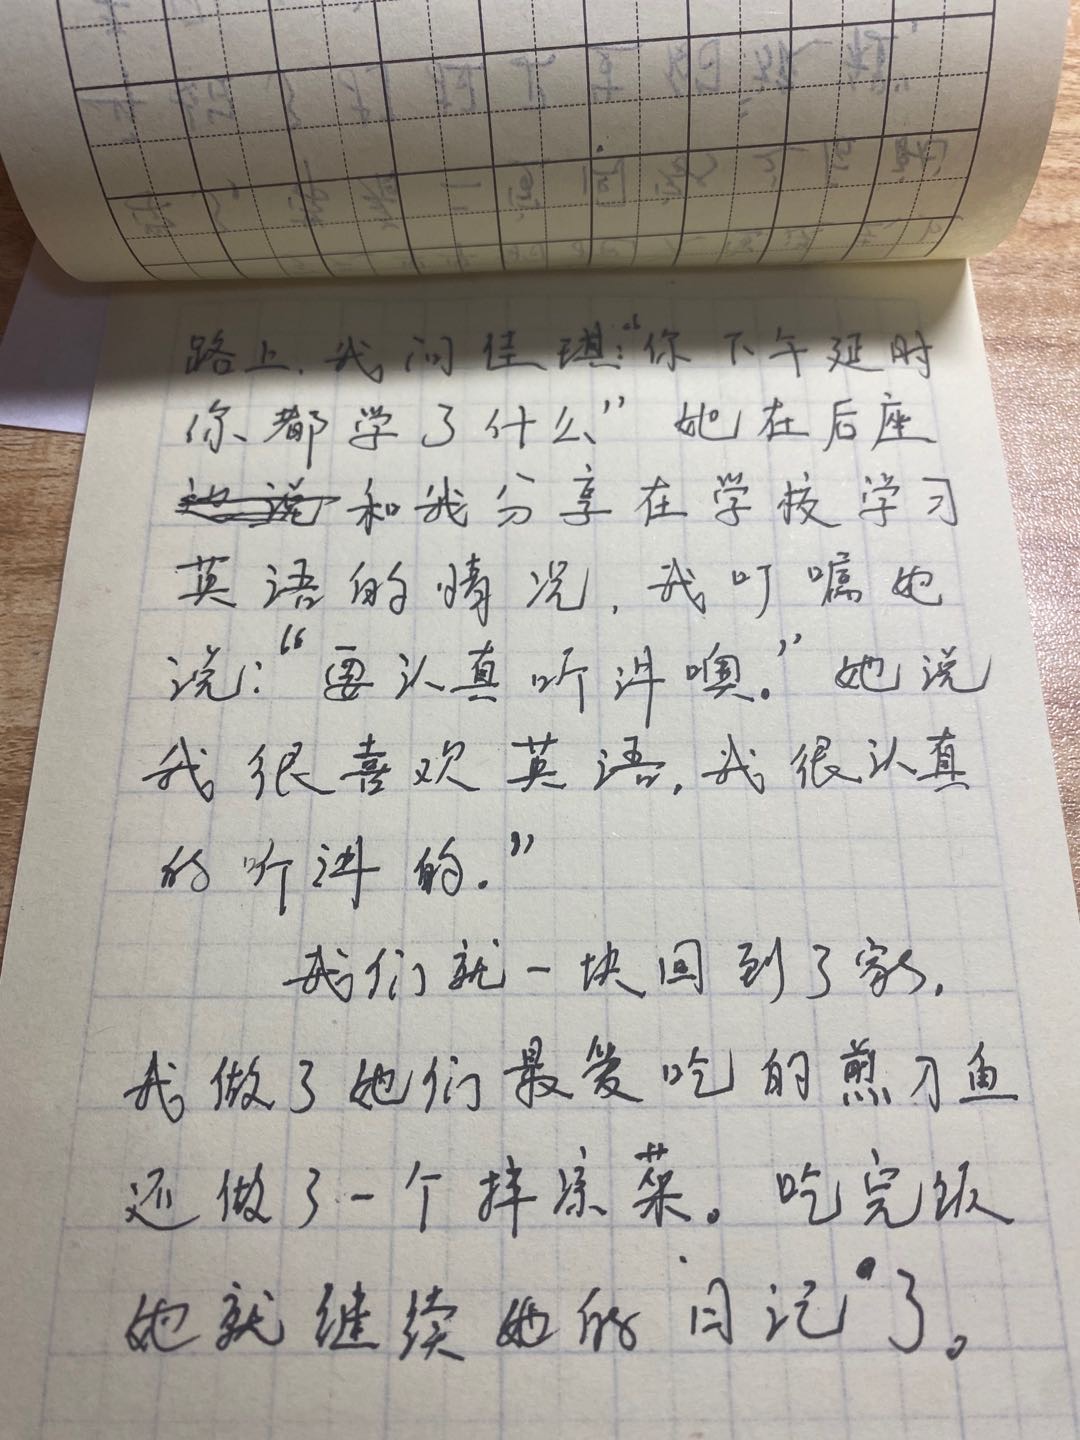 路上,我问佳琪:“你下午延时
你都学了什么”她在后座
和我分享在学校学习
英语的情况,我叮嘱她
说:“要认真听讲噢.”她说
我很喜欢英语,我很认真
的听讲的.”
我们就一块回到了家,
我做了她们最爱吃的煎刀鱼
还做了一个拌凉菜。吃完饭
她就继续她的“日记”了。